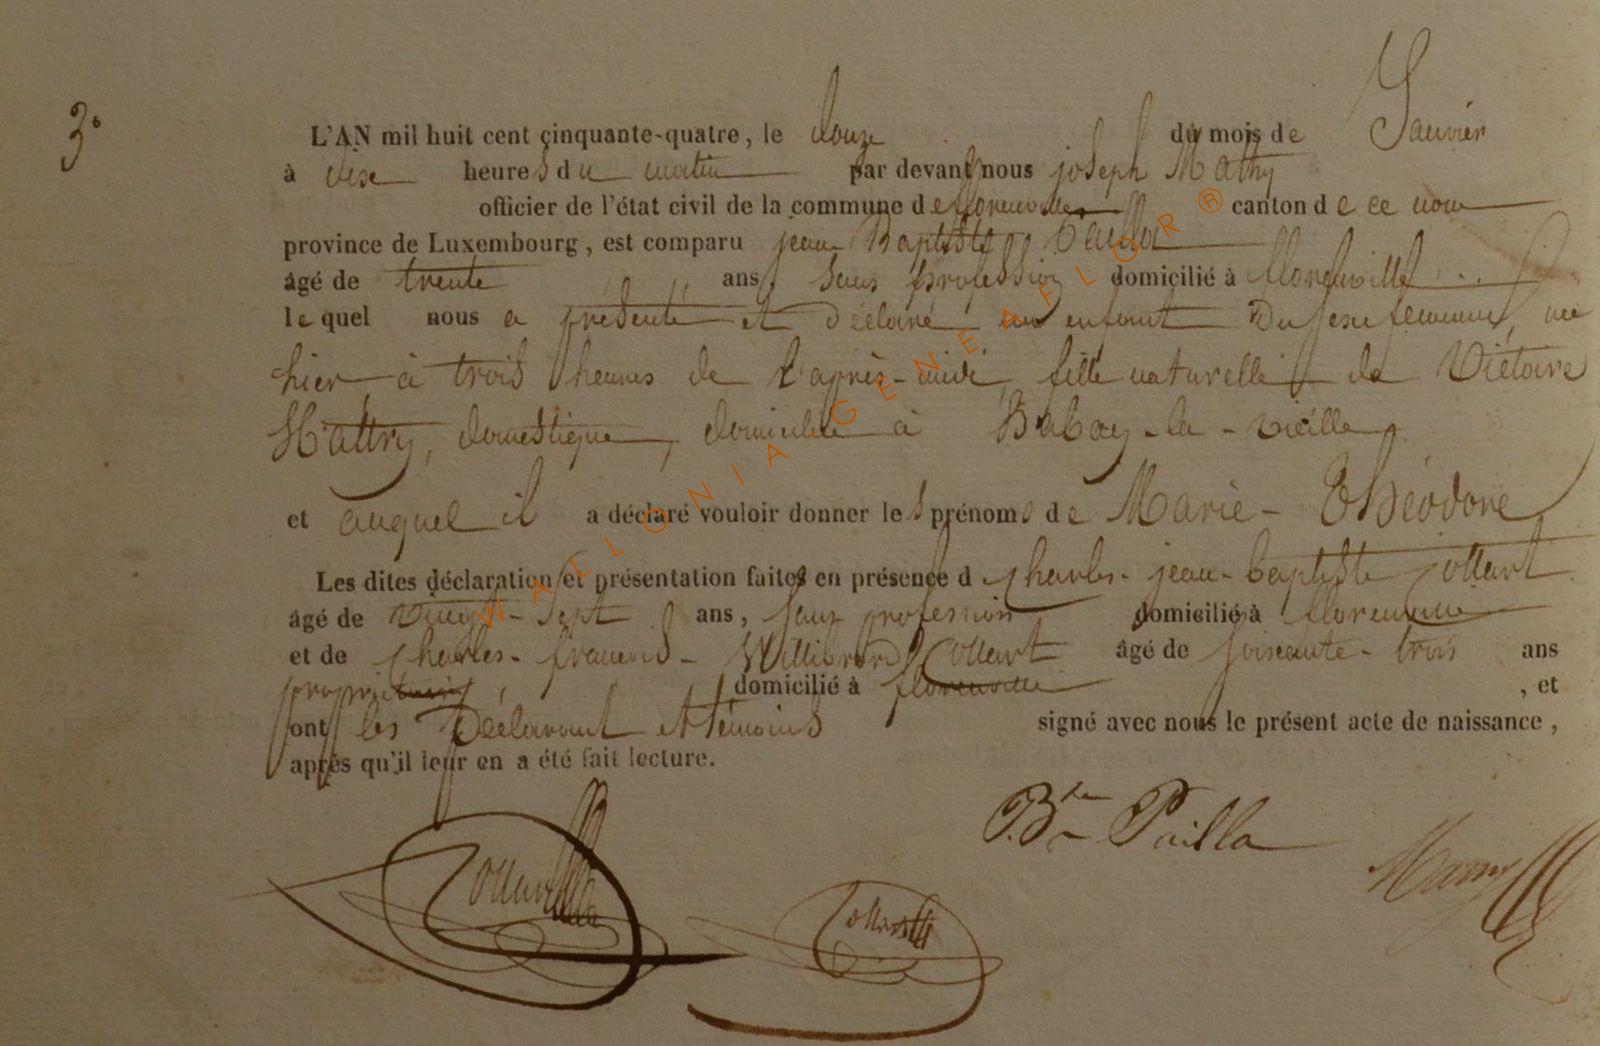 3°
L'AN mil huit cent cinquante-quatre, le douze du mois de Janvier
à dix heures du matin par devant nous joseph Mathy
officier de l'état civil de la commune de florenville canton de ce nom
province de Luxembourg, est comparu jean Baptiste Pailla
âgé de trente ans, sans profession domicilié à florenville
le quel nous a présenté et déclaré un enfant du sexe feminin, né
hier, à trois heures de l'après-midi, fille naturelle de Victoire
Hattry, domestique, domiciliée à Habay-la-vieille,
et auquel il a déclaré vouloir donner les prénoms de Marie-Théodore
Les dites déclaration et présentation faites en présence d Charles-jean-baptiste Collart
âgé de vingt-sept ans, sans profession domicilié à florenville
et de Charles-francois-Willibrord Collart âgé de soixante-trois ans
propriétaire, domicilié à florenville, et
ont les déclarant et témoins signé avec nous le présent acte de naissance,
après qu'il leur en a été fait lecture.
Bte Pailla
Collart
Collart
WAELONIA GENEAFLOR ®